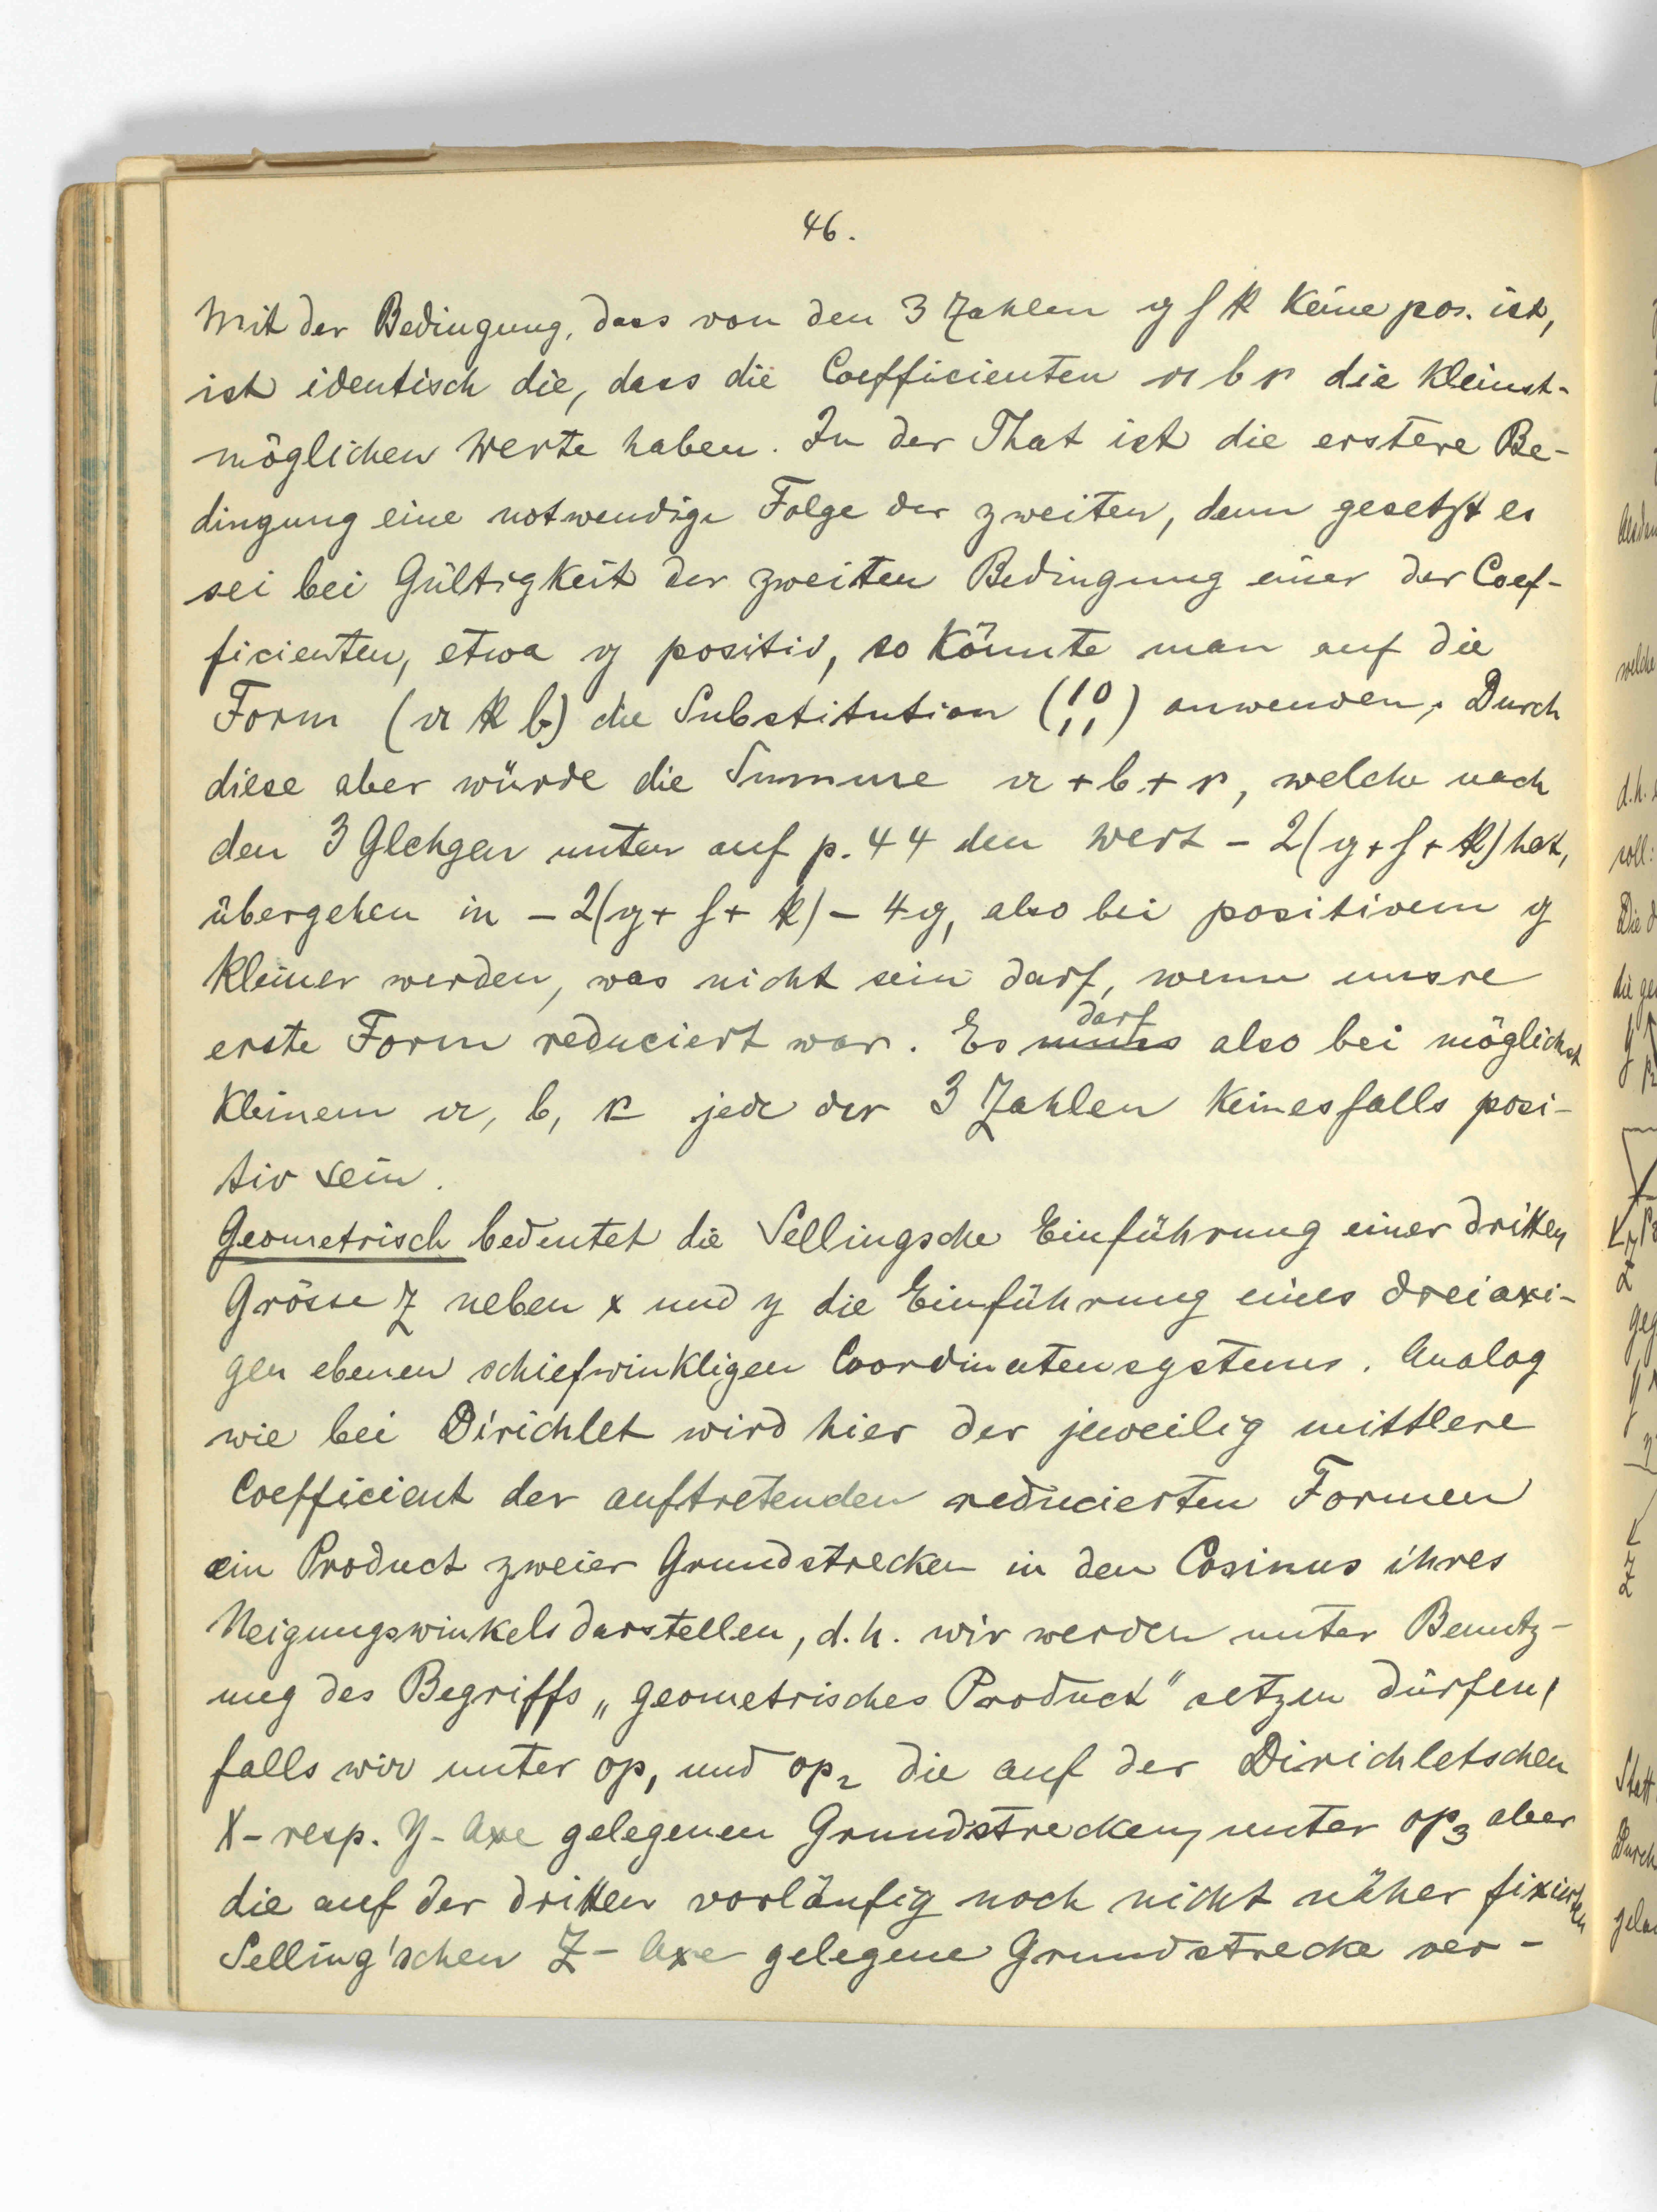 46.
Mit der Bedingung, dass von den 3 Zahlen g h k keine pos. ist,
ist identisch die, dass die Coefficienten a b c die kleinst-
möglichen Werte haben. In der That ist die erstere Be-
dingung eine notwendige Folge der zweiten, denn gesetzt es
sei bei Gültigkeit der zweiten Bedingung einer der Coef-
ficienten, etwa g positiv, so könnte man auf die
Form (a k b) die Substitution (10 11) anwenden. Durch
diese aber würde die Summe a + b + c, welche nach
den 3 Glchgen unten auf p. 44 den Wert - 2(g + h + k) hat,
übergehen in - 2(g + h + k) - 4g, also bei positivem g
kleiner werden, was nicht sein darf, wenn unsre
erste Form reduciert war. Es muss darf also bei möglichst
kleinem a, b, c jede der 3 Zahlen keinesfalls posi-
tiv sein.
Geometrisch bedeutet die Sellingsche Einführung einer dritten
Grösse z neben x und y die Einführung eines dreiaxi-
gen ebenen schiefwinkligen Coordinatensystems. Analog
wie bei Dirichlet wird hier der jeweilig mittlere
Coefficient der auftretenden reducierten Formen
ein Product zweier Grundstrecken in den Cosinus ihres
Neigungswinkels darstellen, d.h. wir werden unter Benutz-
ung des Begriffs „geometrisches Product" setzen dürfen,
falls wir unter op₁ und op₂ die auf der Dirichletschen
X- resp. Y- Axe gelegenen Grundstrecken, unter op₃ aber
die auf der dritten vorläufig noch nicht näher fixierten
Selling'schen Z- Axe gelegene Grundstrecke ver-